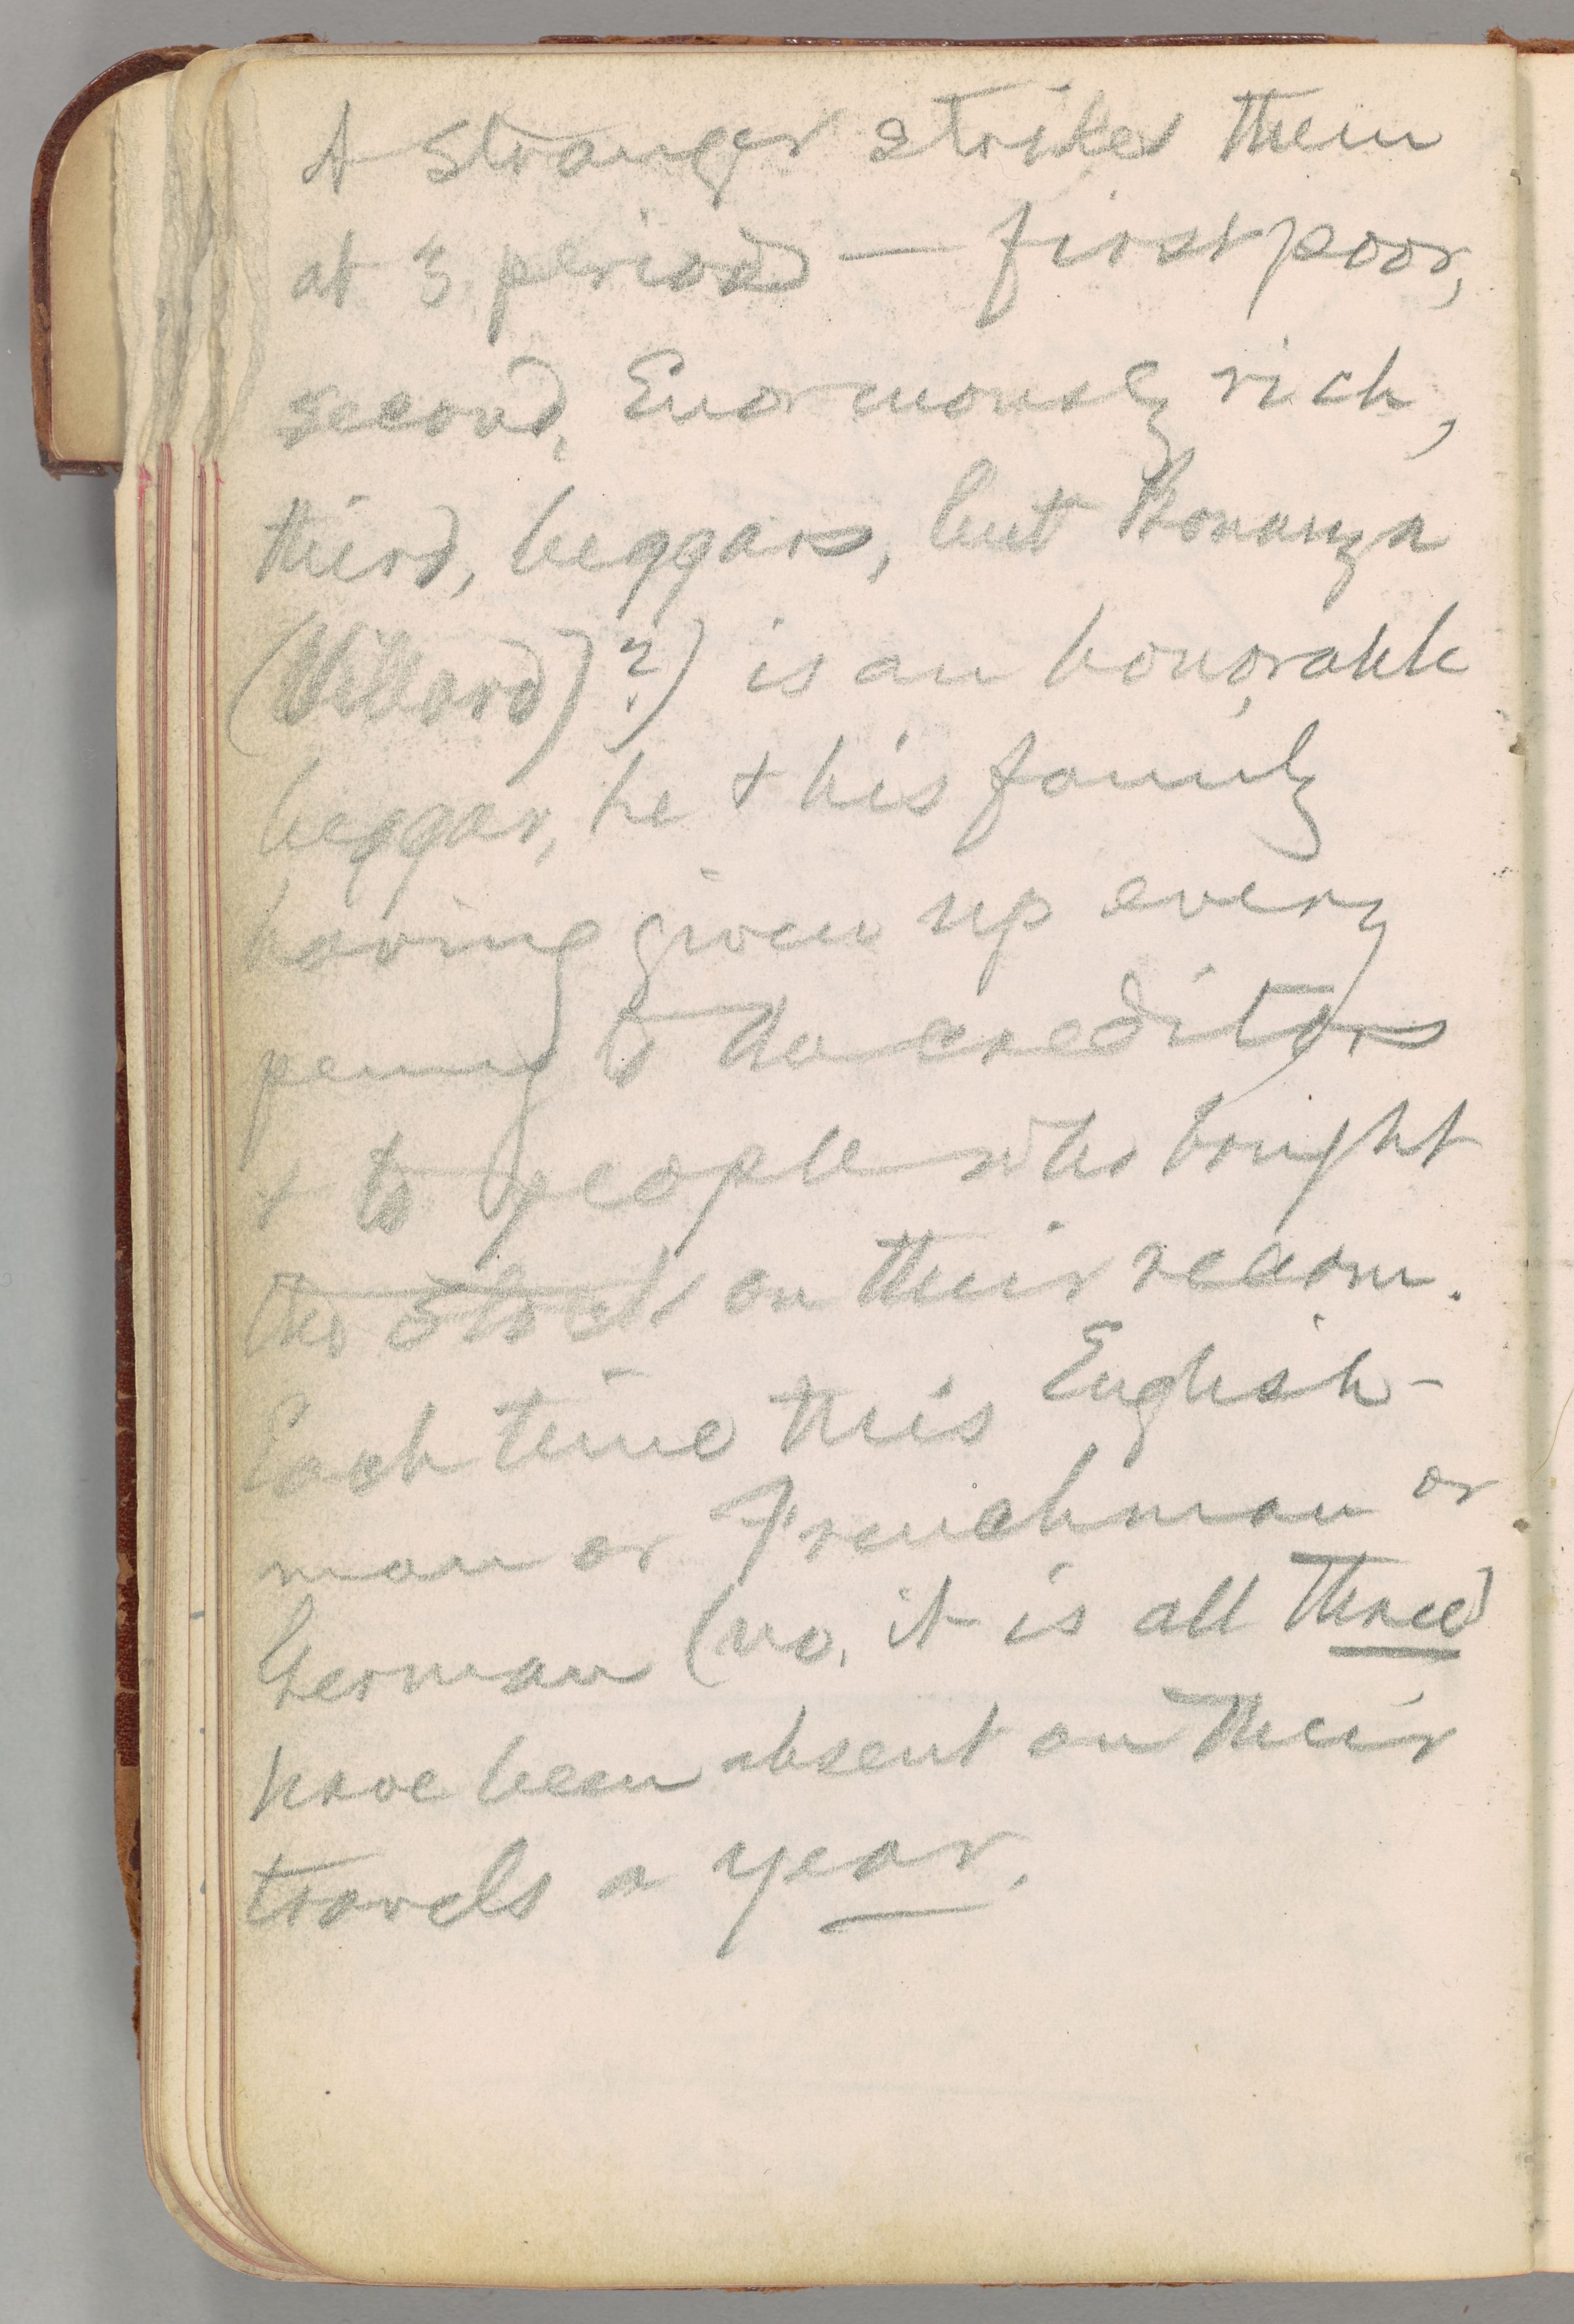 A stranger strikes them
at 3 periods — first poor,
second, Enormously rich,
third, beggars, but Bonanza
(Willard)?) is an honorable
beggar, he + his family
having given up every
penny to the creditors
+ to people who bought
the stock on their recom.
Each time this English-
man or Frenchman or
German (no, it is all three)
have been absent on their
travels a year.